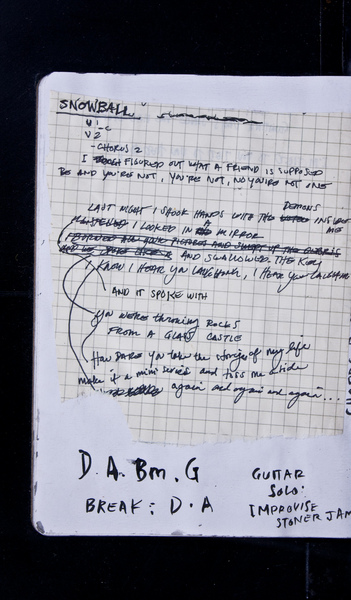 SNOWBALL
V1 - C
V2
- CHORUS 2
I FIGURED OUT WHAT A FRIEND IS SUPPOSED
BE AND YOU'RE NOT, YOU'RE NOT, NO YOU'RE NOT ONE
DEMONS
LAST NIGHT I SHOOK HANDS WITH THE INSIDE OF
ME
I LOOKED IN MIRROR
AND SWALLOWED THE KEY
I KNOW I HEAR YOU LAUGHING, I HEAR YOU LAUGHING
AND IT SPOKE WITH
YOU WERE throwing ROCKS
FROM A GLASS CASTLE
How DARE you take the story of my life
make it a mini series and toss me aside
again and again and again...
D.A.Bm.G
BREAK: D.A
GUITAR
SOLO:
IMPROVISE
STONER JAM